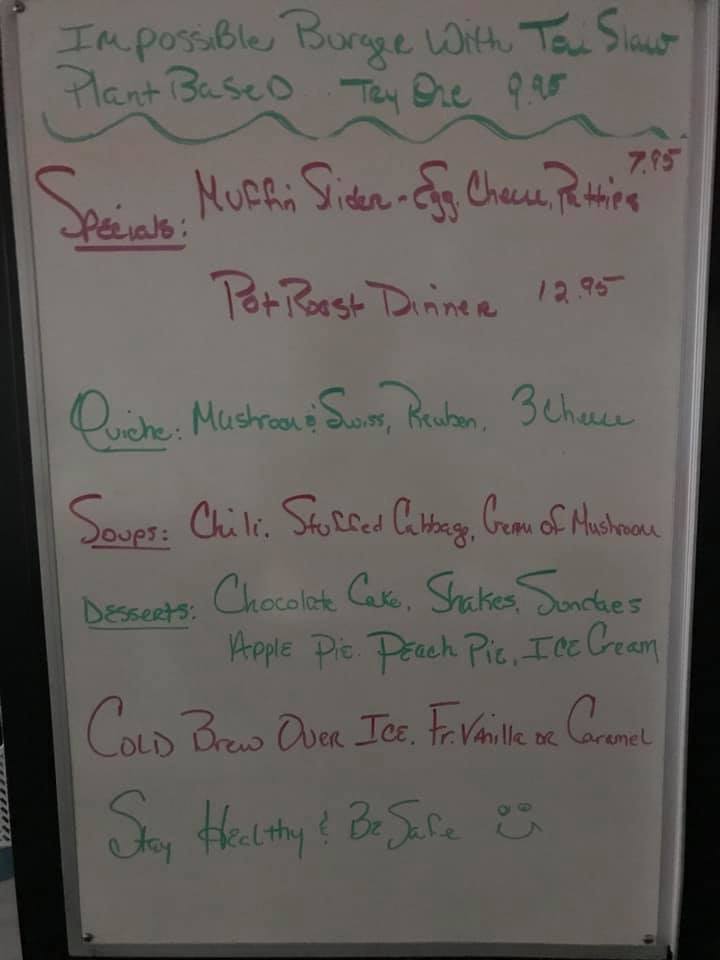 Impossible Burger With Tai Slaw
Plant Based Try One 9.95
7.95
Specials: Muffin Slider - Egg, Cheese, Patties
Pot Roast Dinner 12.95
Quiche: Mushroom & Swiss, Reuben, 3 Cheese
Soups: Chili, Stuffed Cabbage, Cream of Mushroom
Desserts: Chocolate Cake, Shakes, Sundaes
Apple Pie, Peach Pie, Ice Cream
Cold Brew Over Ice, Fr. Vanilla or Caramel
Stay Healthy & Be Safe